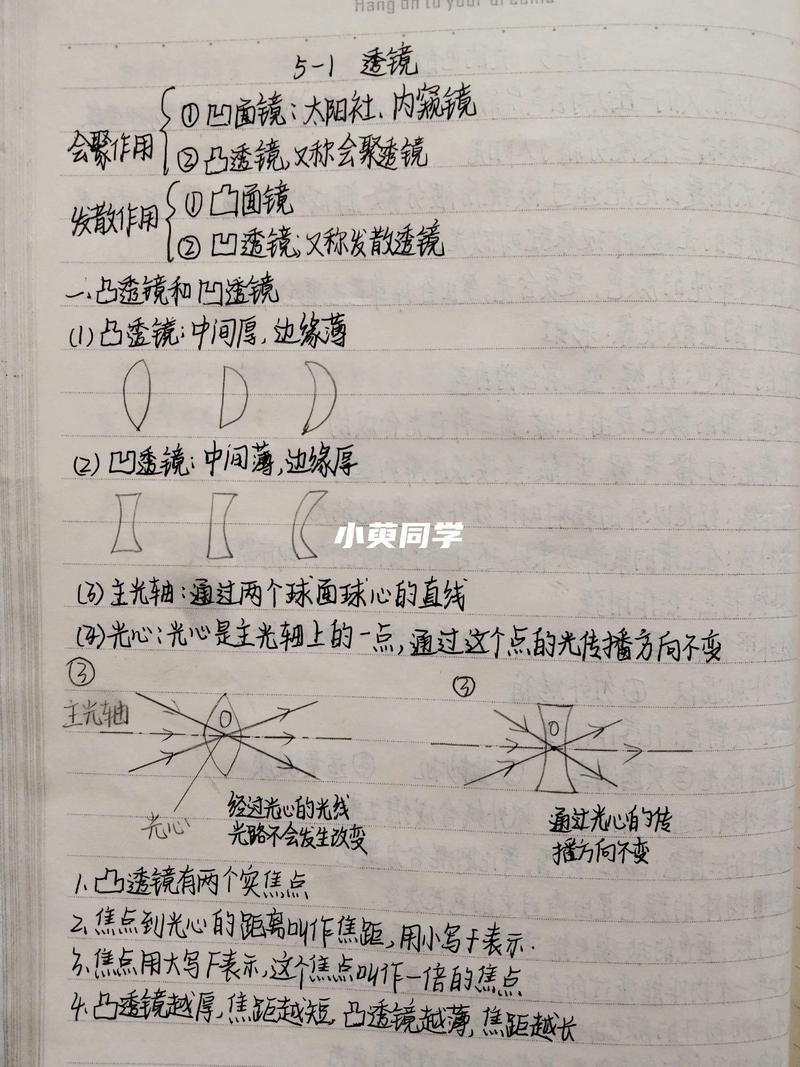 Hang on to your dreams
5-1 透镜
会聚作用
①凹面镜：太阳社、内窥镜
②凸透镜，又称会聚透镜
发散作用
①凸面镜
②凹透镜；又称发散透镜
一、凸透镜和凹透镜
(1)凸透镜：中间厚，边缘薄
(2)凹透镜：中间薄，边缘厚
小萸同学
(3)主光轴：通过两个球面球心的直线
(4)光心：光心是主光轴上的一点，通过这个点的光传播方向不变
③
③
主光轴
O
O
光心
经过光心的光线
光路不会发生改变
通过光心的传
播方向不变
1、凸透镜有两个实焦点
2、焦点到光心的距离叫作焦距，用小写f表示．
3、焦点用大写F表示，这个焦点叫作一倍的焦点
4、凸透镜越厚，焦距越短，凸透镜越薄，焦距越长